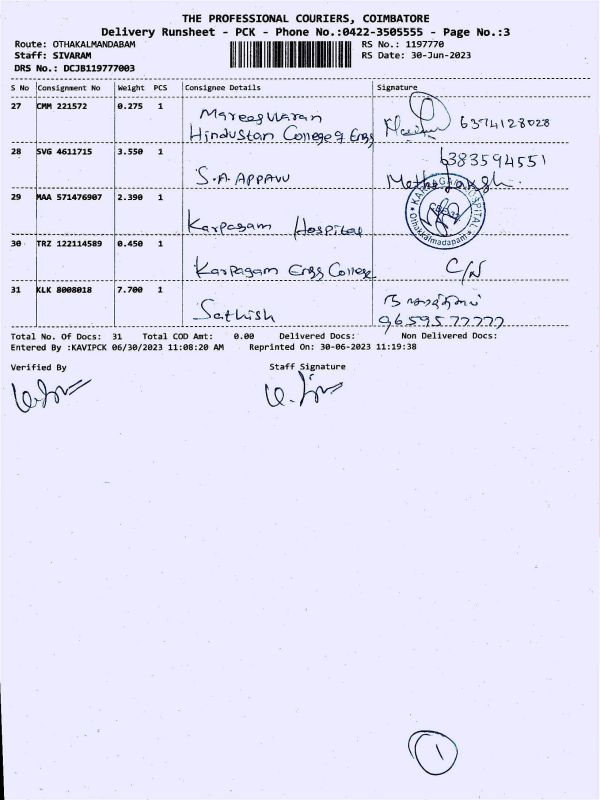 THE PROFESSIONAL COURIERS, COIMBATORE
Delivery Runsheet - PCK - Phone No.:0422-3505555 - Page No.:3
Route: OTHAKALMANDABAM RS No.: 1197770
Staff: SIVARAM RS Date: 30-Jun-2023
DRS No.: DCJB119777003
S No Consignment No Weight PCS Consignee Details Signature
27 CMM 221572 0.275 1 Mareeswaran 6374128028
Hindustan College of Engg
28 SVG 4611715 3.550 1 S.A. APPAVU 6383594551
29 MAA 571476907 2.390 1 Karpagam Hospital
KARPAGAM HOSPITAL Othakkalmadapam
30 TRZ 122114589 0.450 1 Karpagam Engg College C/N
31 KLK 8008018 7.700 1 Sathish
9659577777
Total No. Of Docs: 31 Total COD Amt: 0.00 Delivered Docs: Non Delivered Docs:
Entered By :KAVIPCK 06/30/2023 11:08:20 AM Reprinted On: 30-06-2023 11:19:38
Verified By Staff Signature
1